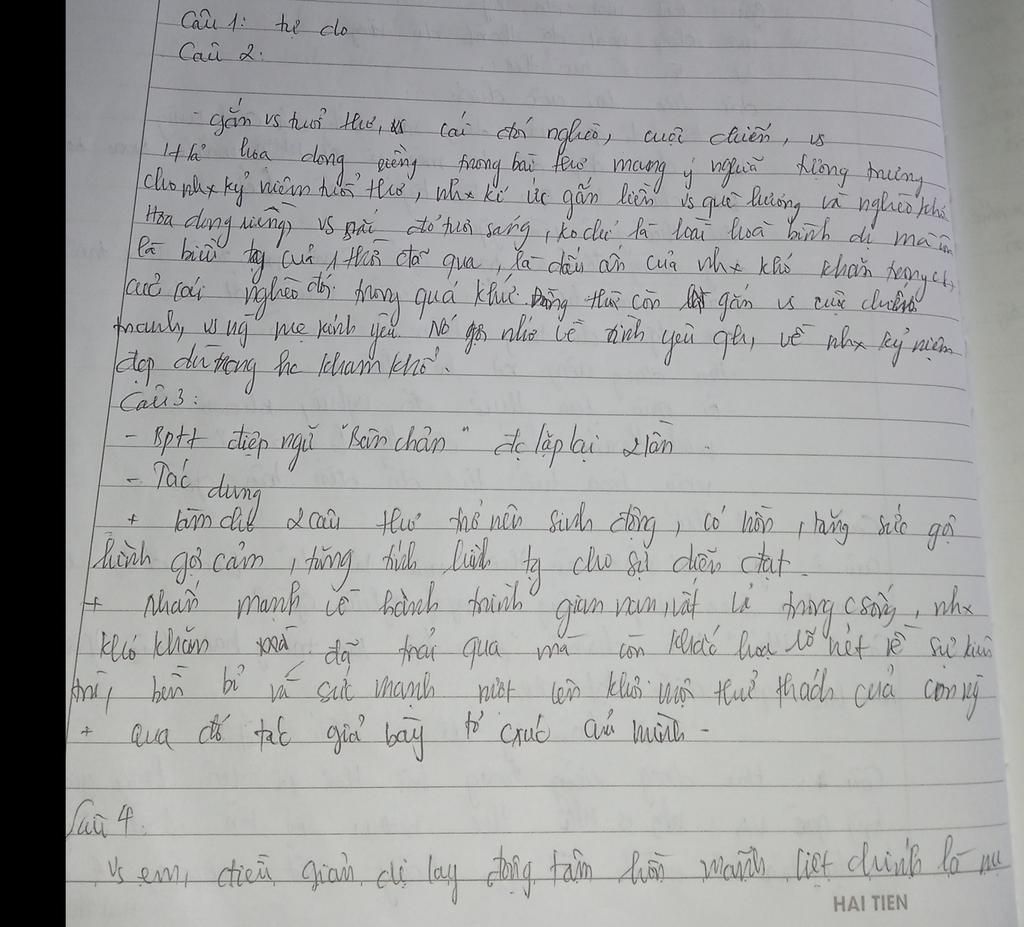 Câu 1: tự do
Câu 2:
- gắn vs tuổi thơ, vs cái đói nghèo, cuộc chiến, vs
H/ả hoa dong riềng trong bài thơ, mang ý nghĩa tượng trưng
cho nhx kỷ niệm tuổi thơ, nhx kí ức gắn liền vs quê hương và nghèo khó
Hoa dong riềng vs đỏ tươi sáng, ko chỉ là loài hoa bình dị mà còn
là biểu tg của 1 thời đã qua, là dấu ấn của nhx khó khăn trong
của cái nghèo đói trong quá khứ thời còn gắn vs cuộc chiến
tranh, vs ng mẹ kính yêu. Nó gợi nhớ về tình yêu qh, về nhx kỷ niệm
đẹp dù trong hc kham khổ.
Câu 3:
- Bptt điệp ngữ "Bàn chân" đc lặp lại 2 lần.
- Tác dụng
+ làm cho 2 câu thơ trở nên sinh động, có hồn, tăng sức gợi
hình gợi cảm, tăng tính hình tg cho sự diễn đạt.
+ Nhấn mạnh về hành trình gian nan, vất vả trong csống, nhx
khó khăn đã trải qua mà còn khắc hoạ rõ nét về sự kiên
trì, bền bỉ và sức mạnh vượt lên khỏi mọi thử thách của con ng
+ Qua đó tác giả bày tỏ cxuc của mình.
Câu 4:
Vs em, điều giản dị lay động tâm hồn mãnh liệt chính là nụ
HAI TIEN